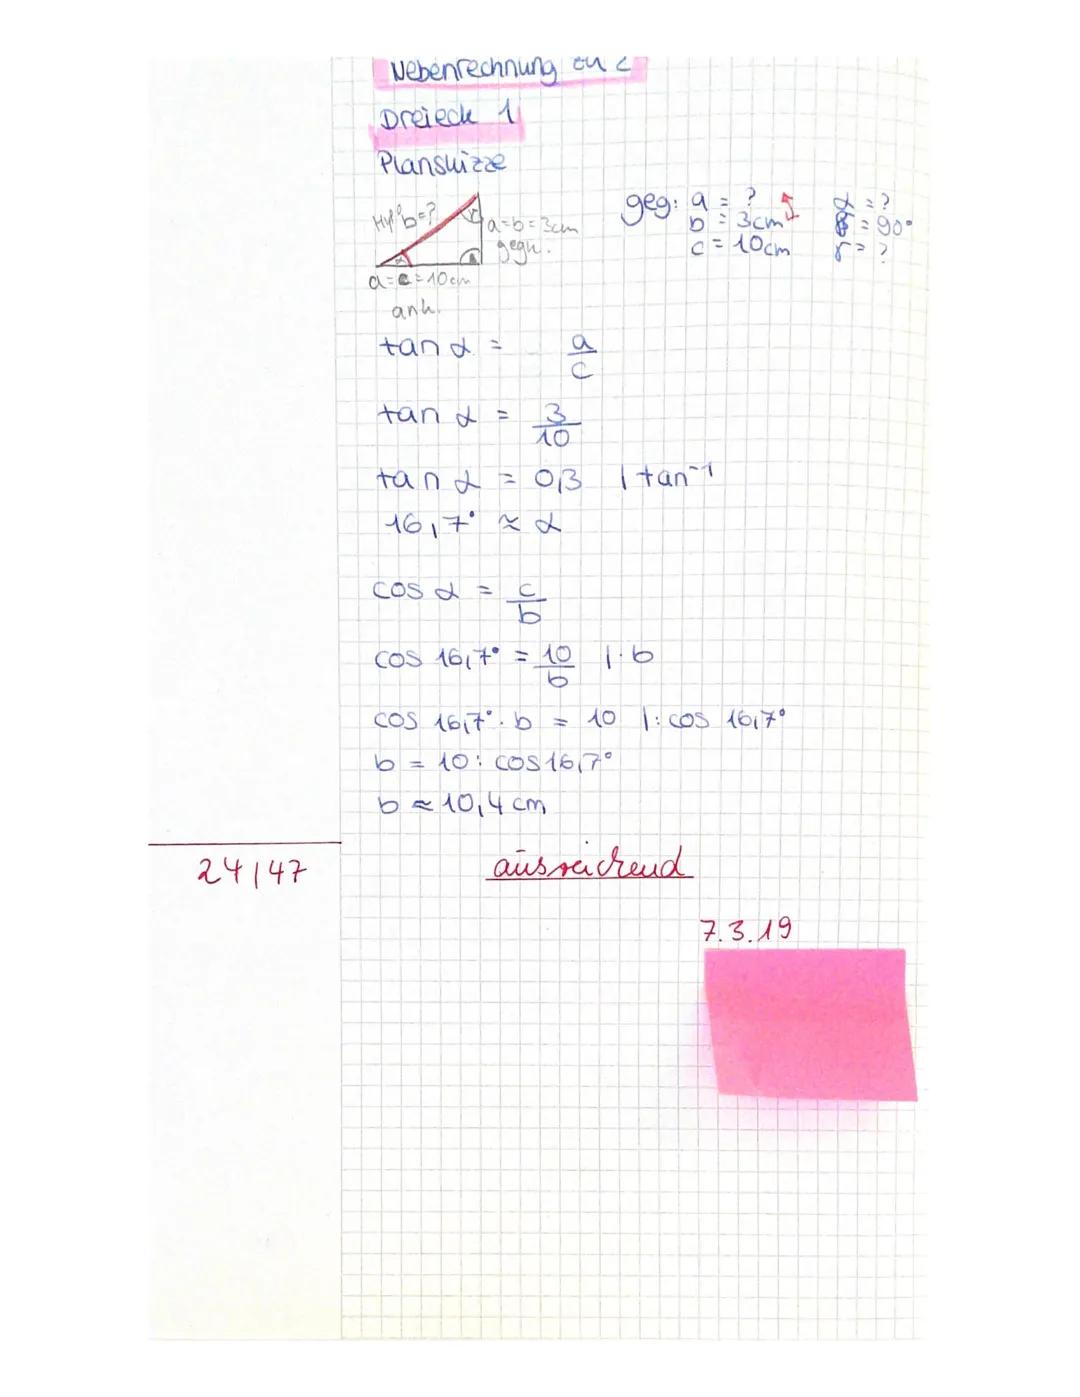 Nebenrechnung zu 2
Dreieck 1
Planskizze
Hyp. b=?
a=b=3cm
gegn.
a=c=10cm
anh.
geg: a = ? α = ?
b = 3cm β = 90°
c = 10cm γ = ?
tan α = a/c
tan α = 3/10
tan α = 0,3 | tan⁻¹
16,7° ≈ α
cos α = c/b
cos 16,7° = 10/b | · b
cos 16,7° · b = 10 | : cos 16,7°
b = 10 : cos 16,7°
b ≈ 10,4 cm
24/47 ausreichend
7.3.19